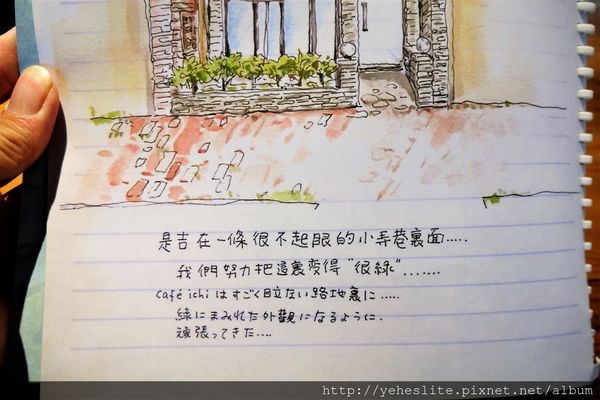 是吉在一條很不起眼的小弄巷裏面.....
我們努力把這裏變得“很綠”.......
café ichi はすごく目立ない路地裏に.....
緑にまみれた外觀になるように.
頑張ってきた....
http://yeheslite.pixnet.net/album